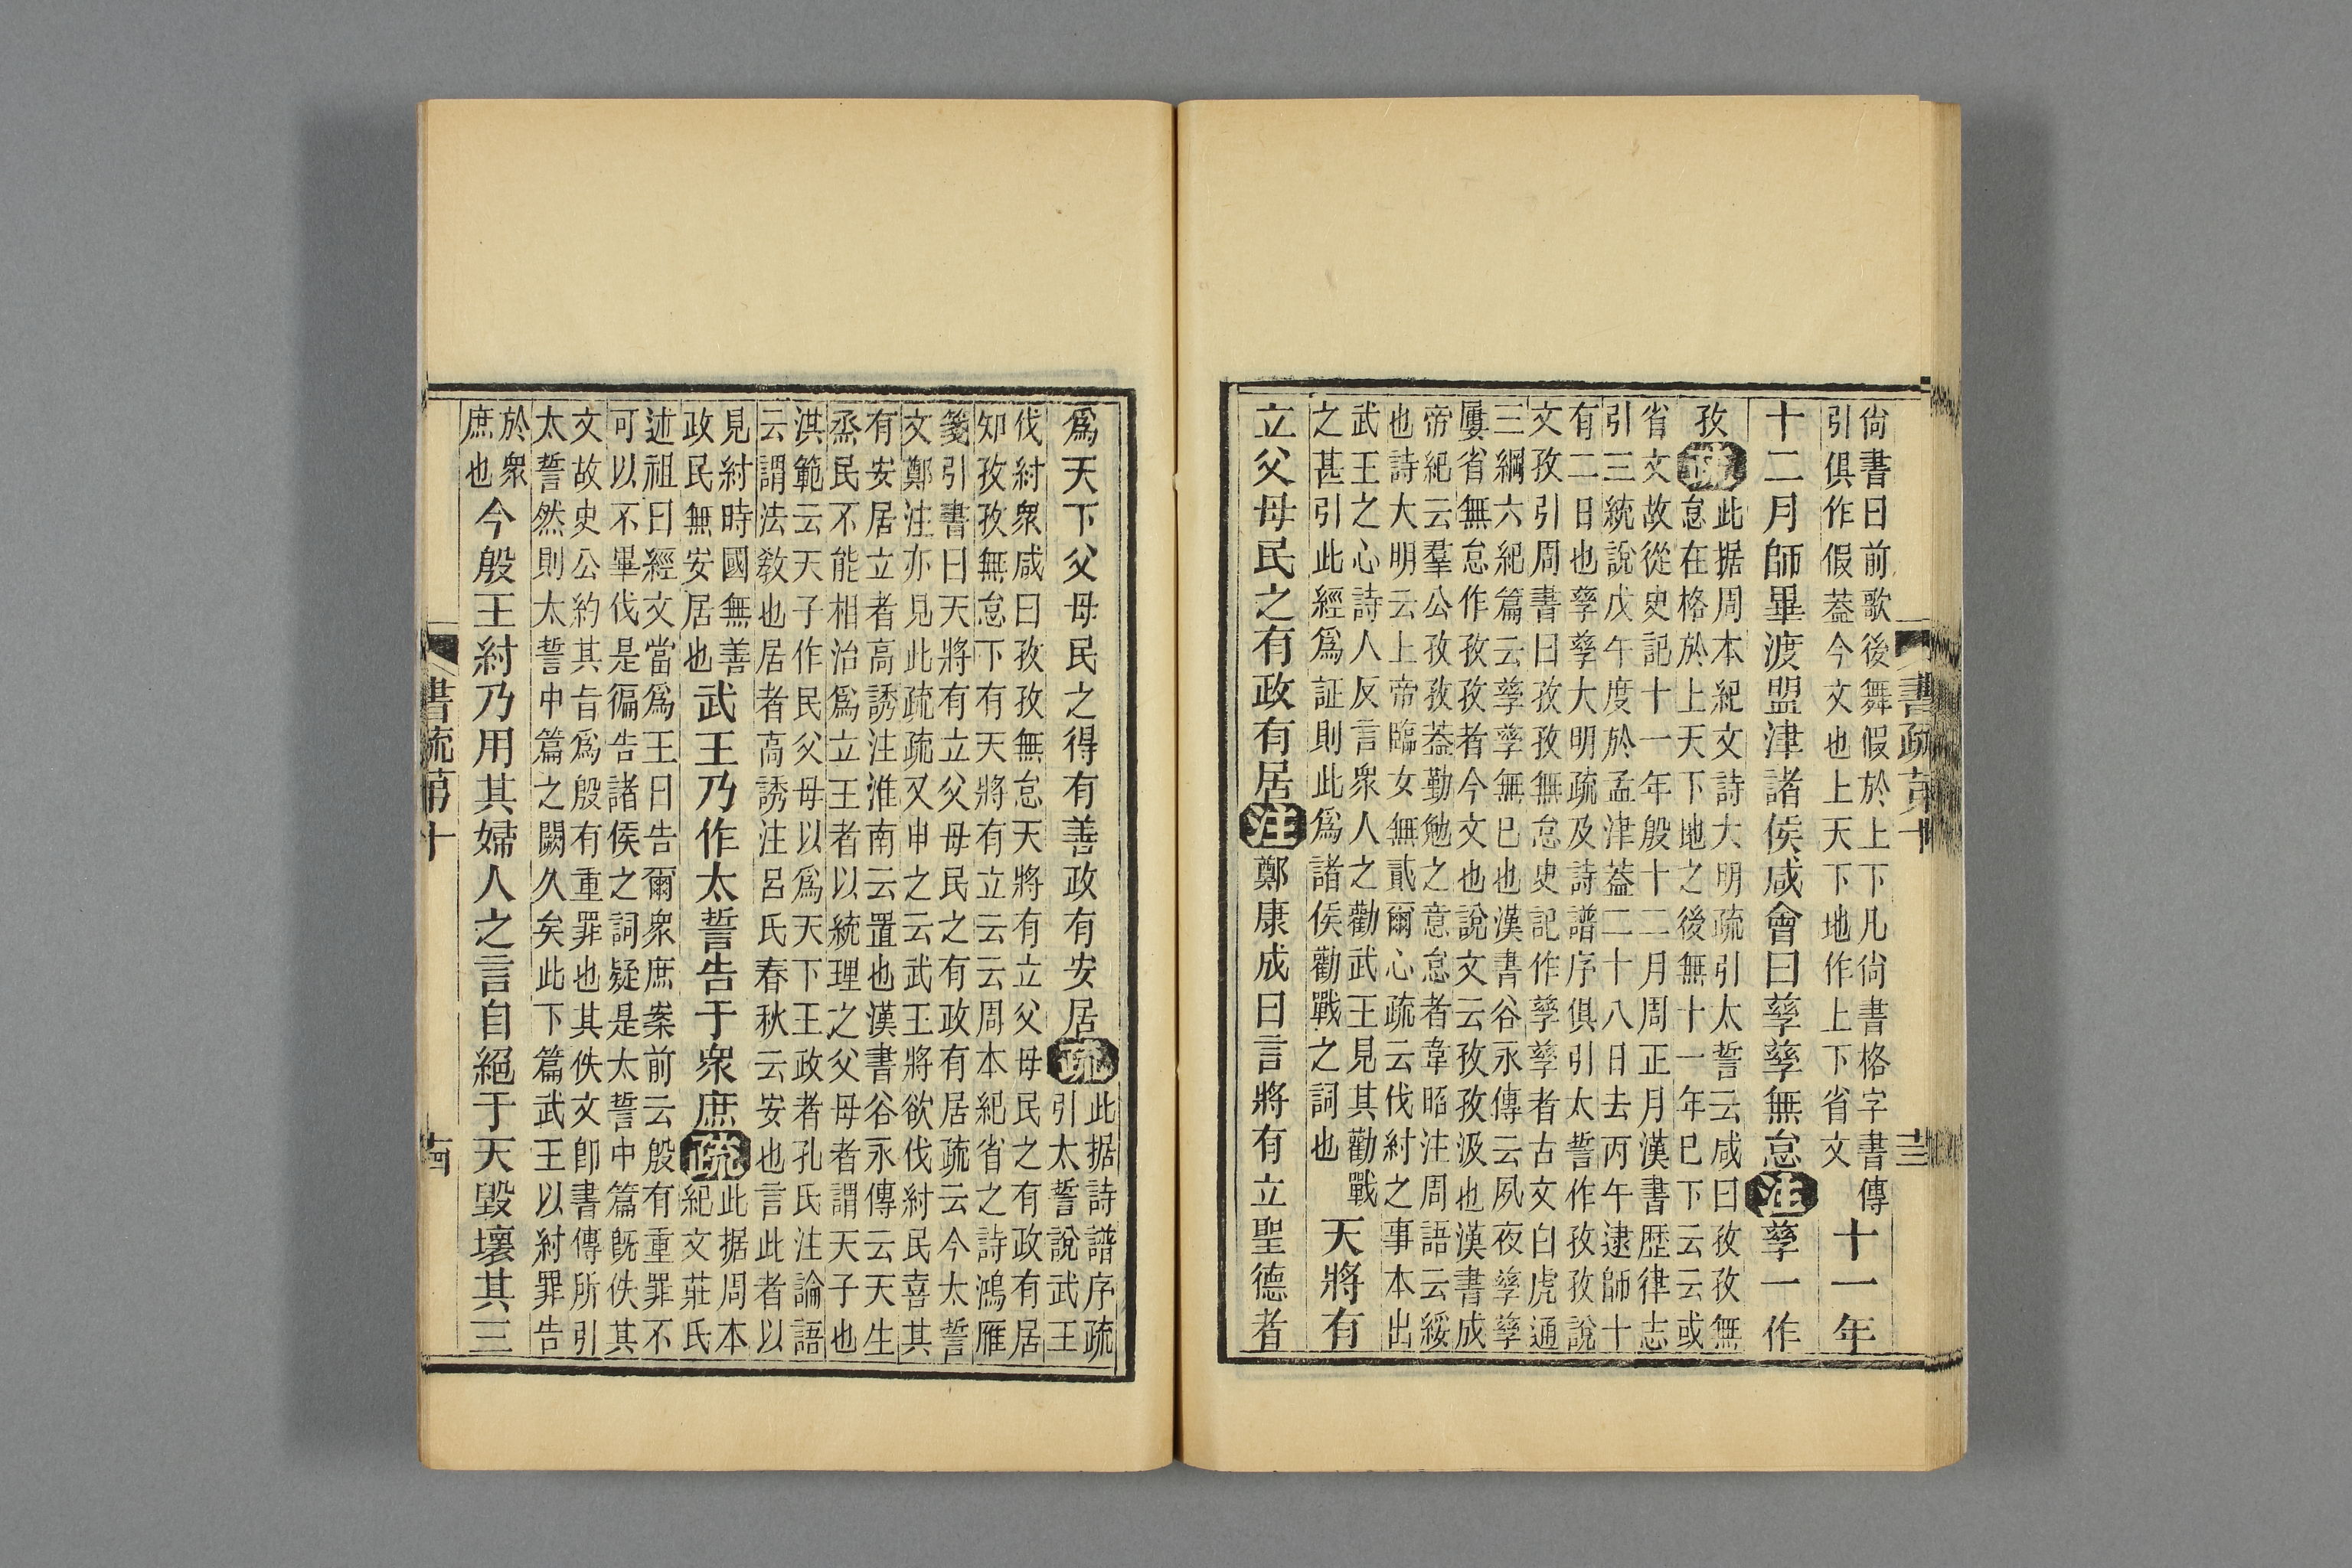 書疏第十 十三
尙書曰前歌後舞假於上下凡尙書格字書傳
引俱作假葢今文也上天下地作上下省文
十一年
十二月師畢渡盟津諸侯咸會曰孳孳無怠注孳一作
孜疏
此据周本紀文詩大明疏引太誓云咸曰孜孜無
怠在格於上天下地之後無十一年已下云云或
省文故從史記十一年殷十二月周正月漢書歷律志
引三統說戊午度於孟津葢二十八日去丙午逮師十
有二日也孳孳大明疏及詩譜序俱引太誓作孜孜說
文孜引周書曰孜孜無怠史記作孳孳者古文白虎通
三綱六紀篇云孳孳無已也漢書谷永傳云夙夜孳孳
屢省無怠作孜孜者今文也說文云孜孜汲也漢書成
帝紀云羣公孜孜葢勤勉之意怠者韋昭注周語云綏
也詩大明云上帝臨女無貳爾心疏云伐紂之事本出
武王之心詩人反言衆人之勸武王見其勸戰
之甚引此經爲証則此爲諸侯勸戰之詞也
天將有
立父母民之有政有居注鄭康成曰言將有立聖德者
爲天下父母民之得有善政有安居疏
此据詩譜序疏
引太誓說武王
伐紂衆咸曰孜孜無怠天將有立父母民之有政有居
知孜孜無怠下有天將有立云云周本紀省之詩鴻雁
箋引書曰天將有立父母民之有政有居疏云今太誓
文鄭注亦見此疏疏又申之云武王將欲伐紂民喜其
有安居立者高誘注淮南云置也漢書谷永傳云天生
烝民不能相治爲立王者以統理之父母者謂天子也
洪範云天子作民父母以爲天下王政者孔氏注論語
云謂法敎也居者高誘注呂氏春秋云安也言此者以
見紂時國無善
政民無安居也
武王乃作太誓告于衆庶疏
此据周本
紀文莊氏
述祖曰經文當爲王曰告爾衆庶案前云殷有重罪不
可以不畢伐是徧告諸侯之詞疑是太誓中篇旣佚其
文故史公約其旨爲殷有重罪也其佚文卽書傳所引
太誓然則太誓中篇之闕久矣此下篇武王以紂罪告
於衆
庶也
今殷王紂乃用其婦人之言自絕于天毀壞其三
書疏第十 十四